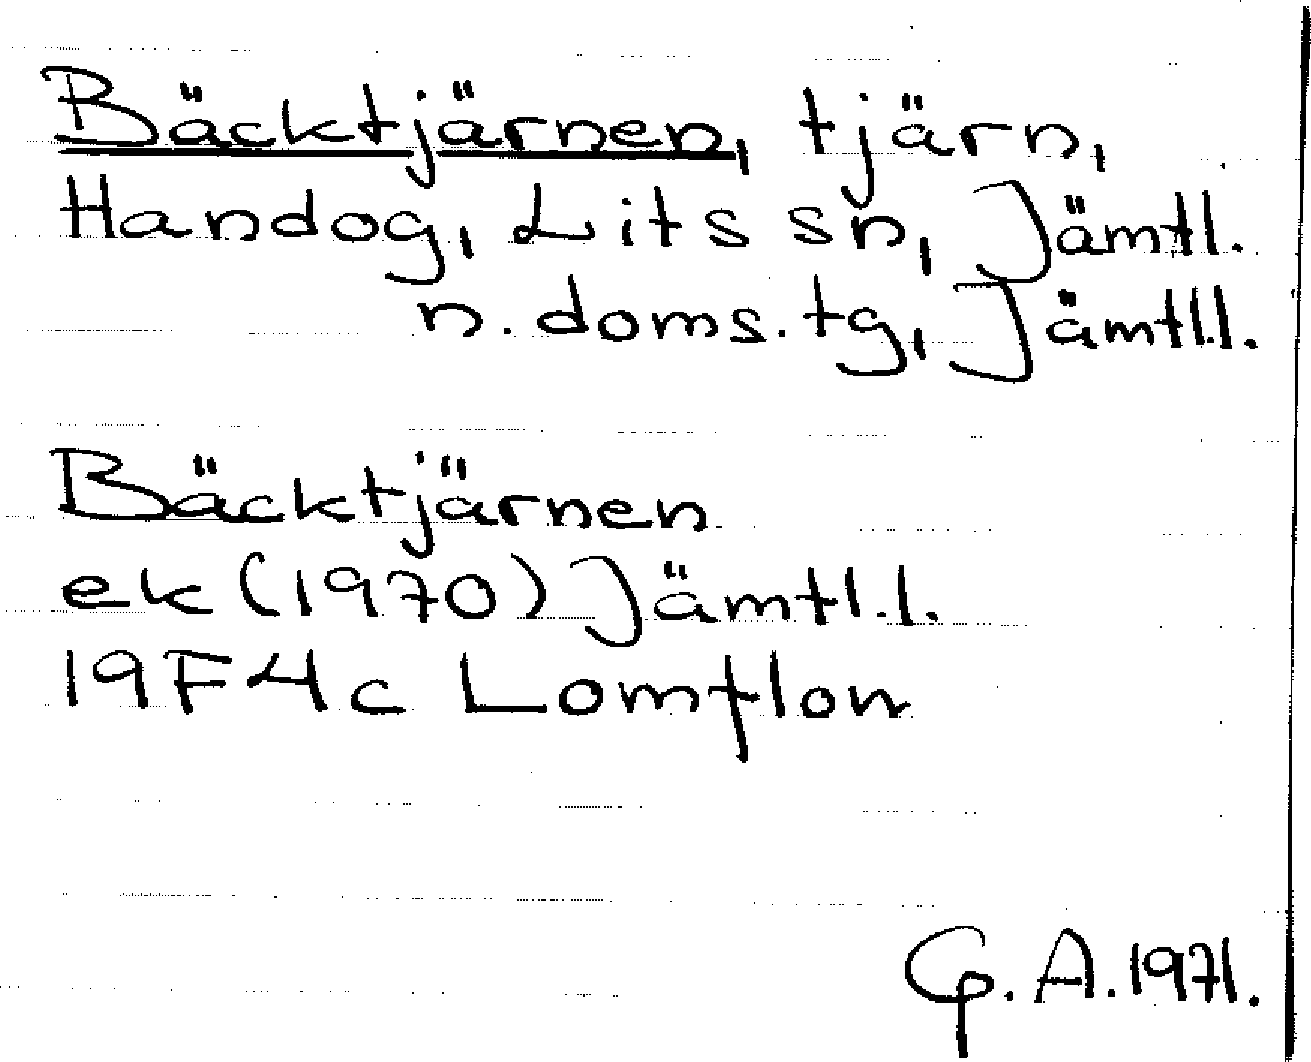 Bäcktjärnen, tjärn,
Handog, Lits sn, Jämtl.
n. doms. tg, Jämtl.l.
Bäcktjärnen
ek (1970) Jämtl.l.
19F4c Lomflon
G. A. 1971.